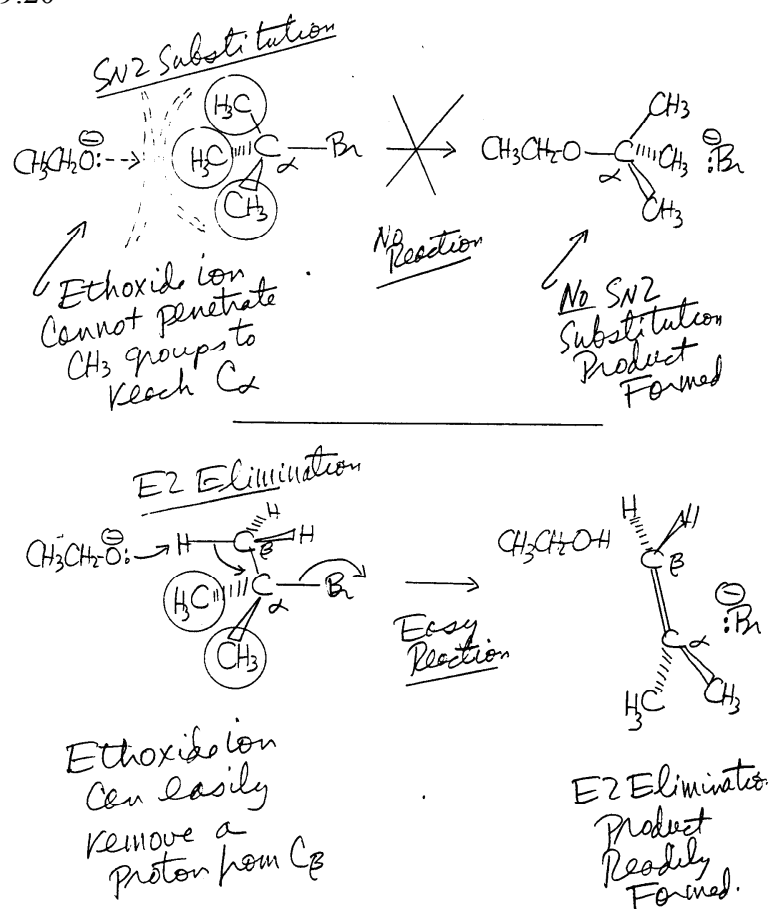 9.20
SN2 Substitution
H3C
CH3CH2O: H3C C α Br
CH3
CH3
CH3CH2-O C α CH3 :Br
CH3
No
Reaction
Ethoxide ion
Cannot penetrate
CH3 groups to
reach Cα
No SN2
Substitution
Product
Formed
E2 Elimination
H
CH3CH2-O: H C β H
H3C C α Br
CH3
Easy
Reaction
CH3CH2-O-H
H H
C β
C α :Br
H3C CH3
Ethoxide ion
can easily
remove a
proton from Cβ
E2 Elimination
Product
Readily
Formed.